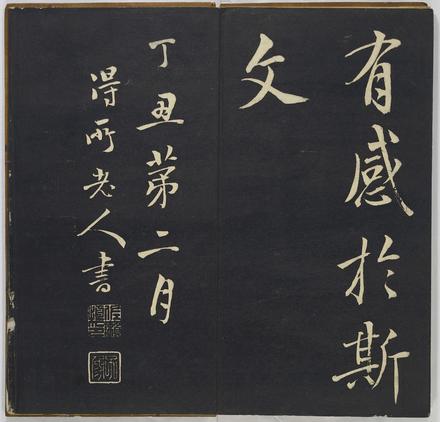 有感於斯
文
丁丑第二月
得所老人書